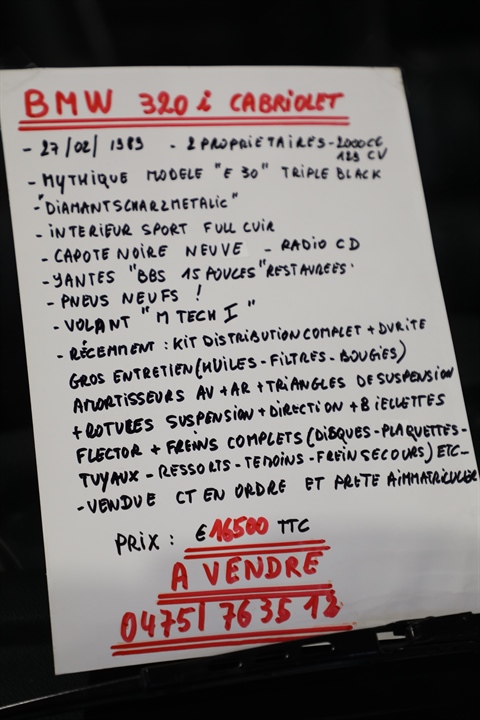 BMW 320 i CABRIOLET
- 27/02/1989 - 2 PROPRIETAIRES - 2000CC
129 CV
- MYTHIQUE MODELE "E 30" TRIPLE BLACK
- "DIAMANTSCHARZMETALIC"
- INTERIEUR SPORT FULL CUIR
- CAPOTE NOIRE NEUVE - RADIO CD
- YANTES "BBS 15 POUCES" RESTAUREES.
- PNEUS NEUFS !
- VOLANT "M TECH I"
- RÉCEMMENT : KIT DISTRIBUTION COMPLET + DURITE
GROS ENTRETIEN (HUILES - FILTRES - BOUGIES)
AMORTISSEURS AV + AR + TRIANGLES DE SUSPENSION
+ ROTULES SUSPENSION + DIRECTION + BIELLETTES
FLECTOR + FREINS COMPLETS (DISQUES - PLAQUETTES -
TUYAUX - RESSORTS - TEMOINS - FREIN SECOURS) ETC -
- VENDUE CT EN ORDRE ET PRETE A IMMATRICULER
PRIX : € 16500 TTC
A VENDRE
0475/76 35 12